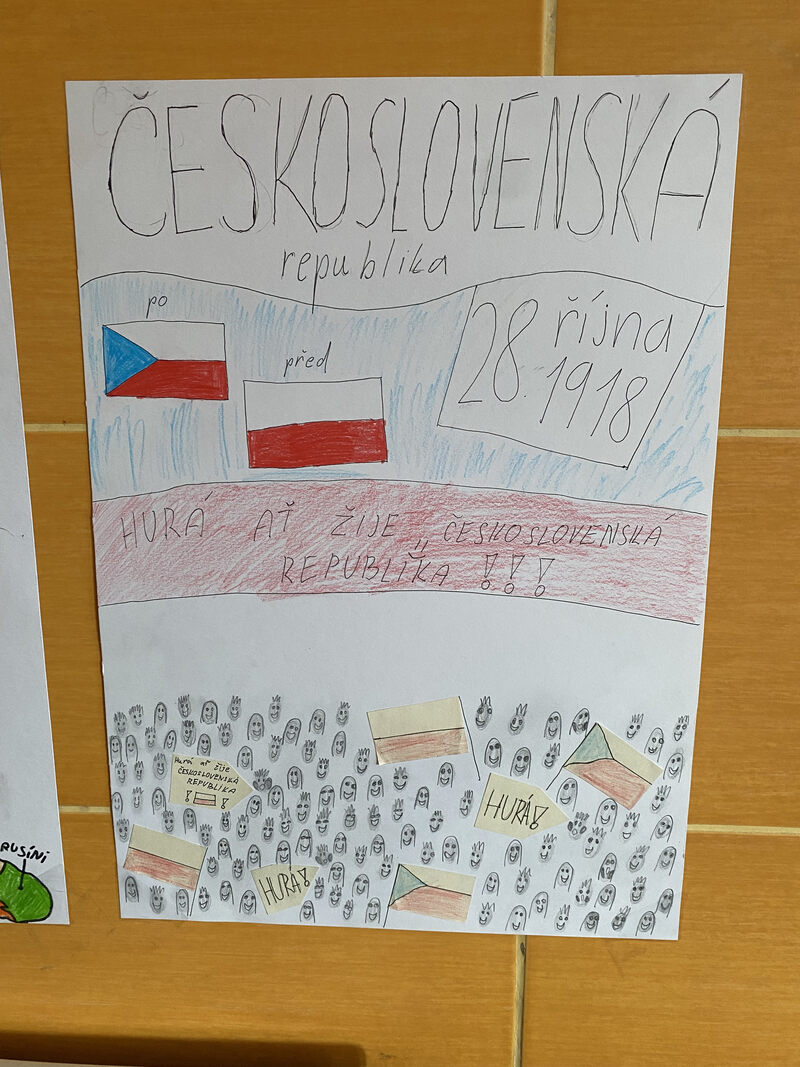 ČESKOSLOVENSKÁ
republika
po
před
28. října
1918
HURÁ AŤ ŽIJE „ČESKOSLOVENSKÁ
REPUBLIKA" !!!
Hurá ať žije
ČESKOSLOVENSKÁ
REPUBLIKA
! !
HURÁ!
HURÁ!
RUSÍNI